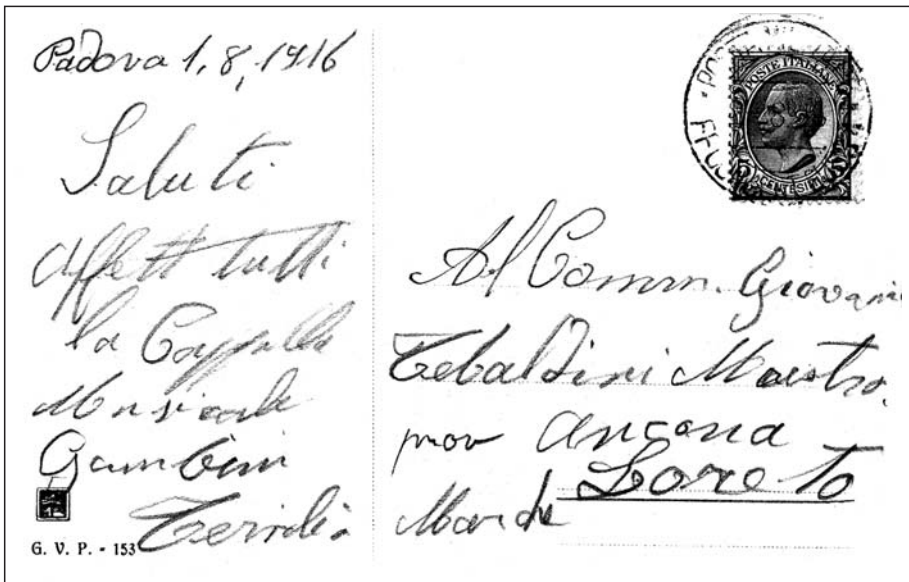 Padova 1, 8, 1916
Saluti
affett tutti
la Cappella
Musicale
Gambini
G. V. P. - 153
POSTE ITALIANE
CENTESIMI
Al Comm. Giovani
Tebaldini Maestro
prov Ancona
Loreto
Marche